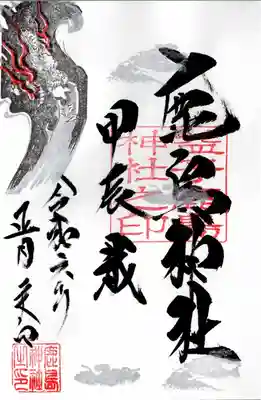 鹿島神社
甲辰歳
神社之印
令和六年
鹿島
神社
之印